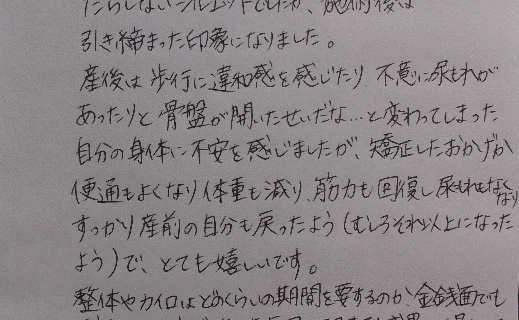 だらしないシルエットでしたが、施術後は
引き締まった印象になりました。
産後は歩行に違和感を感じたり、不意に尿もれが
あったりと骨盤が開いたせいだな…と変わってしまった
自分の身体に不安を感じましたが、矯正したおかげか
便通もよくなり体重も減り、筋力も回復し尿もれもなくなり
すっかり産前の自分も戻ったよう(むしろそれ以上になった
よう)で、とても嬉しいです。
整体やカイロはどのくらいの期間を要するのか、金銭面でも